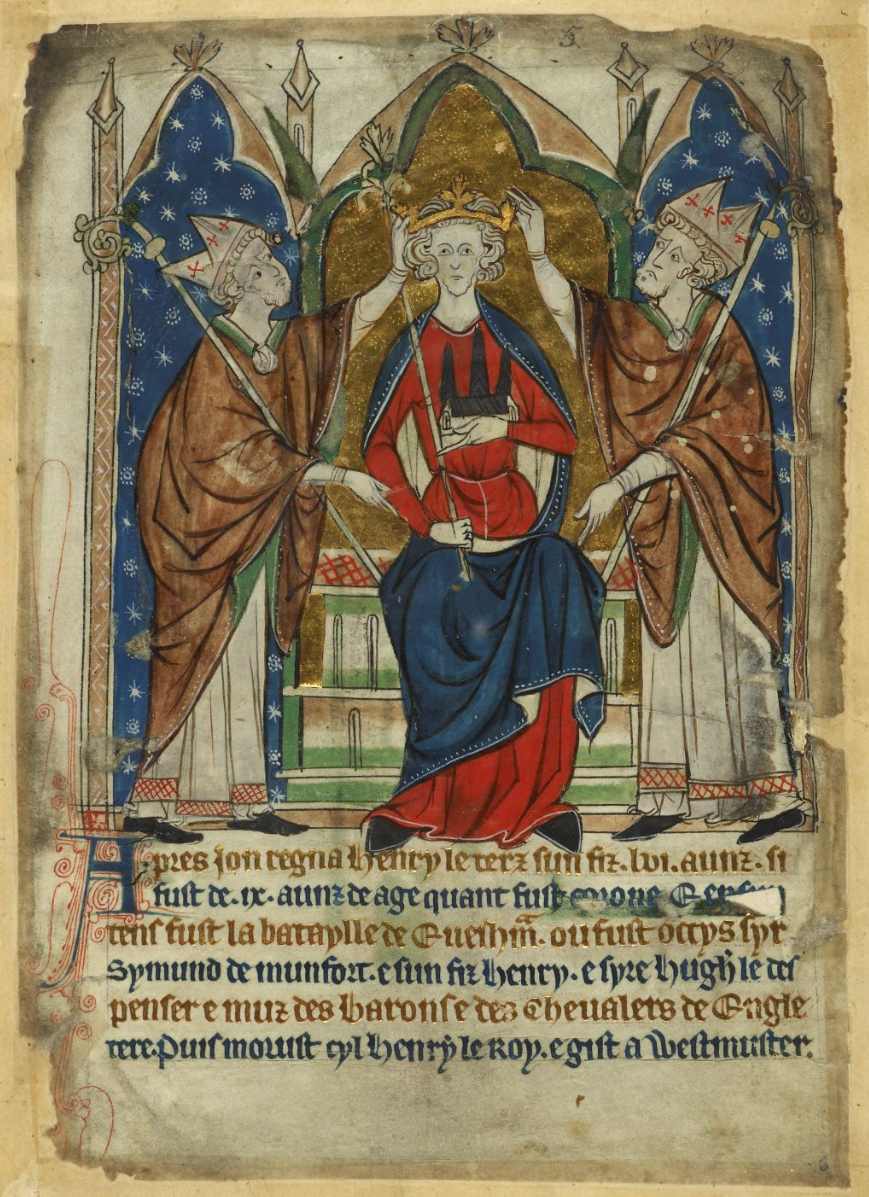 5
Apres Jon regna Henry le terz sun fiz. lvi. aunz. si
fust de .ix. aunz de age quant fust corone E en sun
tens fust la bataylle de Euesham. ou fust occys syr
Symund de munfort. e sun fiz Henry. e syre Hugh le des
penser e muz des barons e des Cheualers de Engle
tere. Puis morust cyl Henry le Roy. e gist a Westmuster.
6